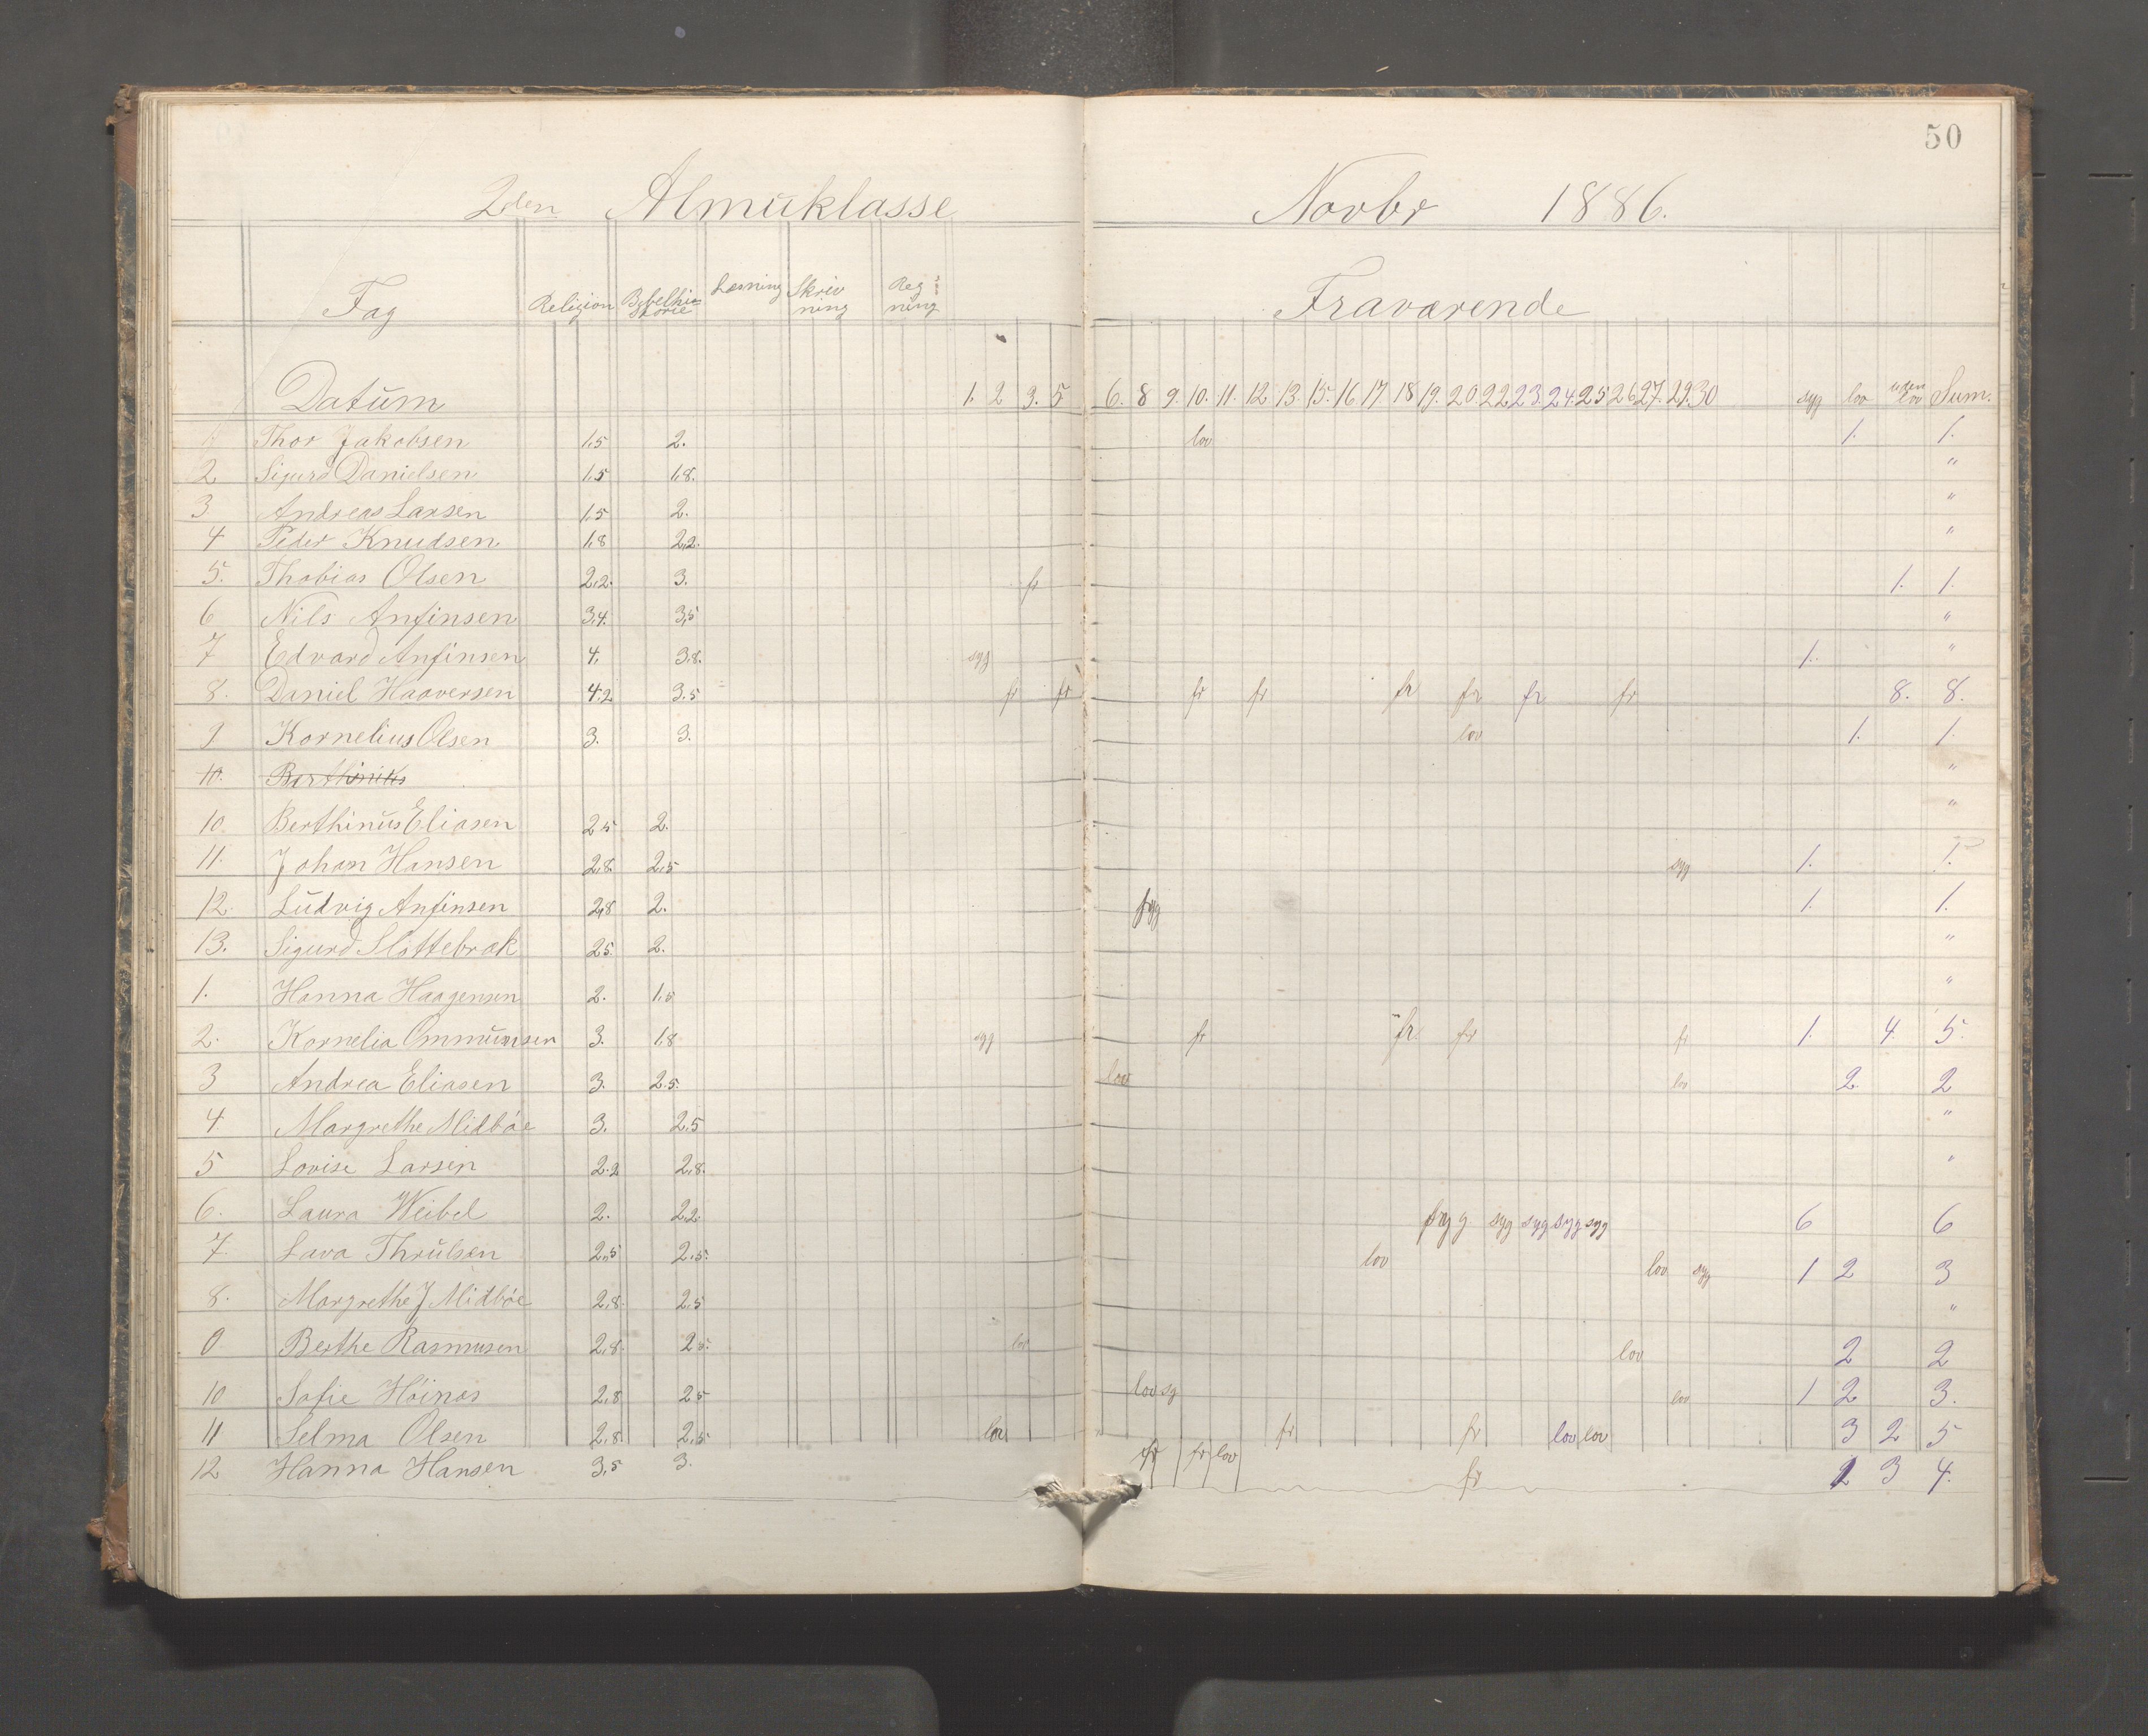 50
2den Almuklasse Novbr 1886.
Fag Religion Bibelhistorie Læsning Skrivning Regning Fraværende
Datum 1. 2 3. 5 6. 8 9. 10. 11. 12 13. 15. 16 17. 18 19. 20. 22 23. 24. 25 26 27. 29. 30 syg lov uden lov Sum.
1 Thor Jakobsen 1,5 2. lov 1. 1.
2 Sigurd Danielsen 1,5 1,8. "
3 Andreas Larsen 1,5 2. "
4 Peder Knudsen 1,8 2,2. "
5. Thobias Olsen 2,2. 3. fr 1. 1.
6 Nils Anfinsen 3,4. 3,5 "
7 Edvard Anfinsen 4. 3,8. syg 1. "
8. Daniel Haaversen 4.2 3.5 fr fr fr fr fr fr fr fr 8. 8.
9 Kornelius Olsen 3. 3. lov 1. 1.
10. Berthinius "
10. Berthinus Eliasen 2 5 2. "
11. Johan Hansen 2,8. 2,5 syg 1. 1.
12. Ludvig Anfinsen 2,8 2. syg 1. 1.
13. Sigurd Slettebrak 2 5. 2. "
1. Hanna Haagensen 2. 1,5 "
2. Kornelia Ommundsen 3. 1,8 syg fr fr. fr fr 1. 4. 5.
3 Andrea Eliasen 3. 2.5. lov lov 2. 2
4. Margrethe Midbøe 3. 2.5 "
5 Lovise Larsen 2.2 2,8. "
6. Laura Weibel 2. 2 2. syg syg syg syg syg 6 6
7. Lava Thrulsen 2,5 2,5. lov lov syg 1 2 3
8. Margrethe J Midbøe 2,8. 2,5 "
9 Berthe Rasmusen 2,8. 2 5. lov lov 2 2
10 Sofie Høinæs 2,8 2 5 lov sg lov 1 2 3.
11 Selma Olsen 2,8. 2,5. lov fr fr lov lov 3 2 5
12 Hanna Hansen 3,5 3. fr fr lov fr 1 3 4.